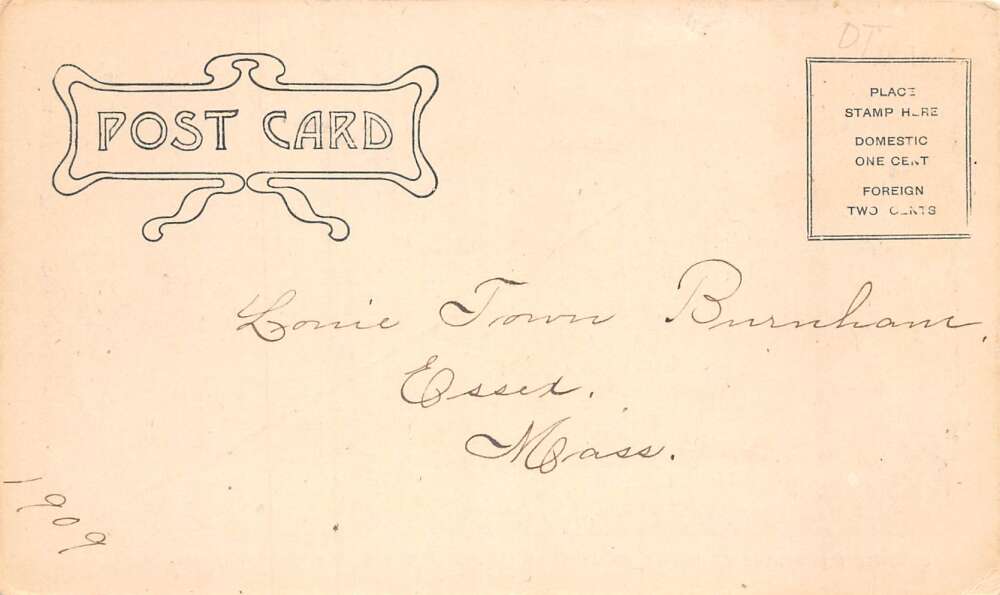 DT
POST CARD
PLACE
STAMP HERE
DOMESTIC
ONE CENT
FOREIGN
TWO CENTS
Lonie Town Burnham,
Essex.
Mass.
1909